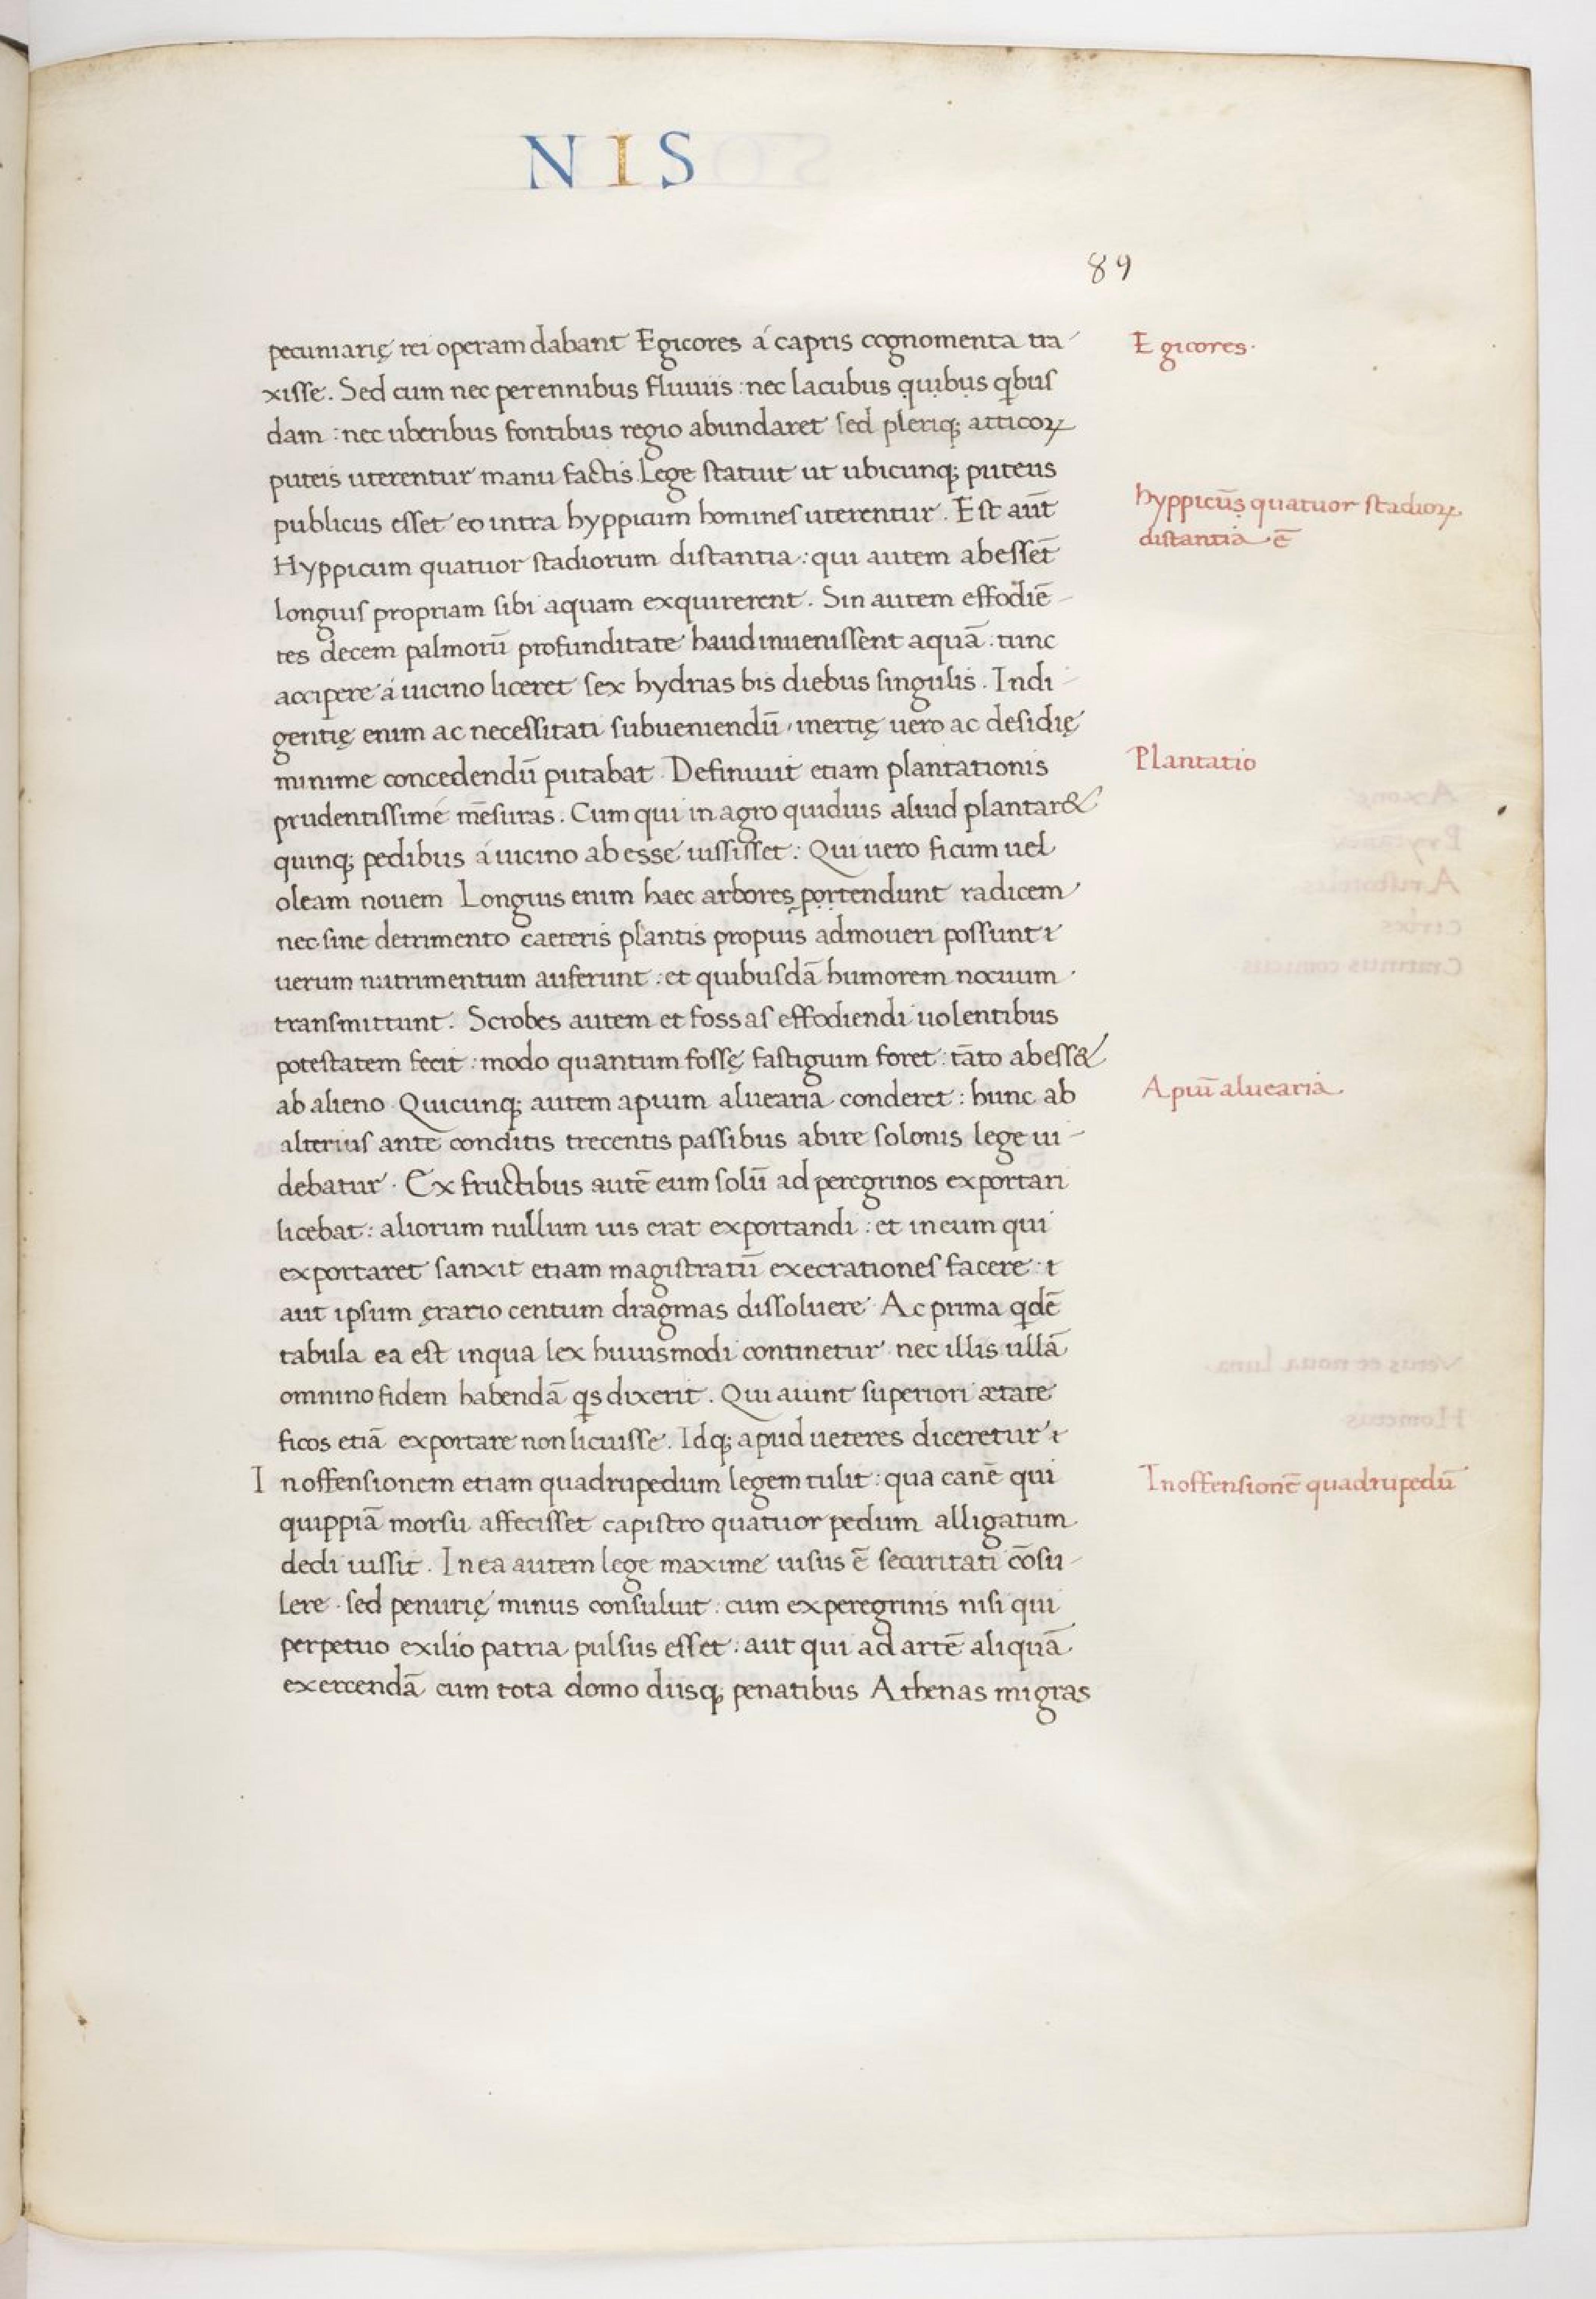 NIS
89
pecuniarię rei operam dabant Egicores á capris cognomenta tra-
xisse. Sed cum nec perennibus fluuiis: nec lacubus quibus qbus
dam: nec uberibus fontibus regio abundaret sed pleriq; atticoꝝ
puteis uterentur manu factis. Lege statuit ut ubicunq; puteus
publicus esset eo intra hyppicum homines uterentur. Est aūt
Hyppicum quatuor stadiorum distantia: qui autem abessēt
longius propriam sibi aquam exquirerent. Sin autem effodiē-
tes decem palmorū profunditate haud inuenissent aquā: tunc
accipere á uicino liceret sex hydrias bis diebus singulis. Indi-
gentię enim ac necessitati subueniendū, inertię uero ac desidię
minime concedendū putabat. Definiuit etiam plantationis
prudentissime mēsuras. Cum qui in agro quiduis aliud plantar&
quinq; pedibus á uicino abesse iussisset: Qui uero ficum uel
oleam nouem Longius enim haec arbores portendunt radicem
nec sine detrimento caeteris plantis propius admoueri possunt:
uerum nutrimentum auferunt: et quibusdā humorem nocuum
transmittunt. Scrobes autem et fossas effodiendi uolentibus
potestatem fecit: modo quantum fossę fastigium foret: tāto abess&
ab alieno. Quicunq; autem apium aluearia conderet: hunc ab
alterius ante conditis trecentis passibus abire solonis lege ui-
debatur. Ex fructibus autē eum solū ad peregrinos exportari
licebat: aliorum nullum ius erat exportandi: et in eum qui
exportaret sanxit etiam magistratū execrationes facere:
aut ipsum ęrario centum dragmas dissoluere. Ac prima qdē
tabula ea est inqua lex huiusmodi continetur nec illis ullā
omnino fidem habendā qs dixerit. Qui aiunt superiori ætate
ficos etiā exportare non licuisse. Idq; apud ueteres diceretur
In offensionem etiam quadrupedum legem tulit: qua canē qui
quippiā morsu affecisset capistro quatuor pedum alligatum
dedi iussit. In ea autem lege maxime uisus ē securitati cōsu-
lere. sed penurię minus consuluit: cum ex peregrinis nisi qui
perpetuo exilio patria pulsus esset: aut qui ad artē aliquā
exercendā cum tota domo diisq; penatibus Athenas migras
Egicores.
hyppicūs quatuor stadioꝝ
distantia ē
Plantatio
Apiū aluearia
In offensionē quadrupedū